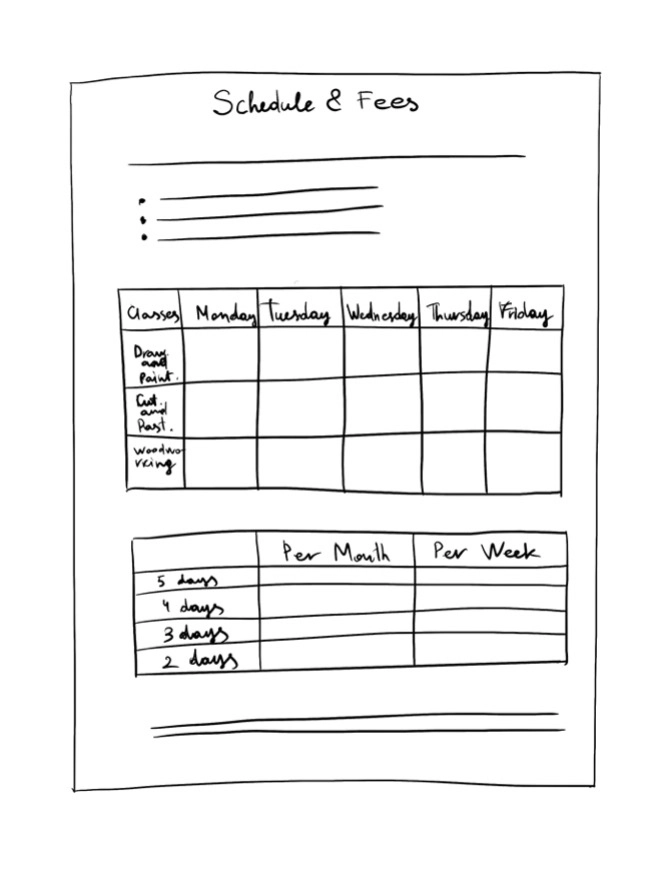 Schedule & Fees
Classes Monday Tuesday Wednesday Thursday Friday
Draw.
and
Paint.
Cut.
and
Past.
Woodwo
rking
Per Month Per Week
5 days
4 days
3 days
2 days